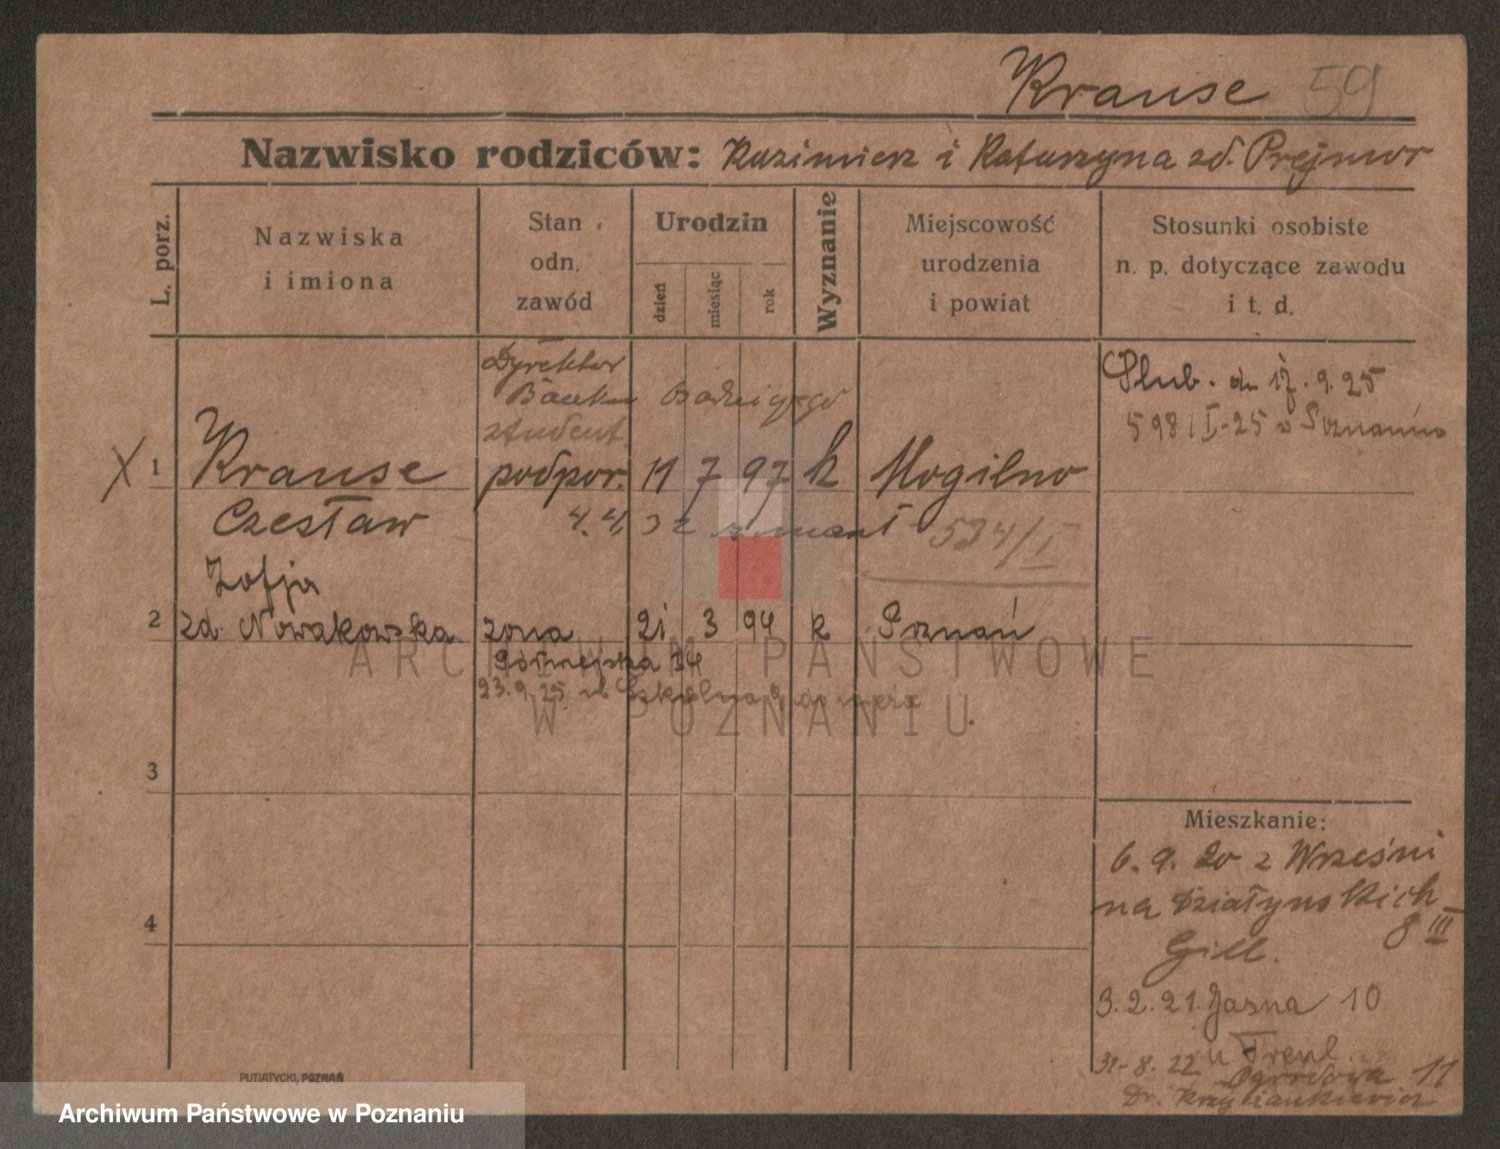 Krause 59
Nazwisko rodziców: Kazimierz i Katarzyna zd. Prejmor
L. porz.
Nazwiska
i imiona
Stan
odn.
zawód
Urodzin
dzień
miesiąc
rok
Wyznanie
Miejscowość
urodzenia
i powiat
Stosunki osobiste
n. p. dotyczące zawodu
i t. d.
Dyrektor
Banku
student
Ślub. dn 17. 9. 25
598/I-25 w Poznaniu
X 1 Krause podpor. 11 7 97 k Mogilno
Czesław 4. 4. 32 zmarł 524/I
Zofja
2 zd. Nowakowska żona 21 3 94 k Poznań
34
23. 9. 25 Szkolna
3
4
Mieszkanie:
6. 9. 20 z Wrześni
na Działyńskich
8 III
Gill.
3. 2. 21. Jasna 10
u Frenl.
31-8. 22 Ogrodowa 11
Dr. Krzyżankiewicz
PUTIATYCKI, POZNAŃ
ARCHIWUM PAŃSTWOWE
W POZNANIU
Archiwum Państwowe w Poznaniu